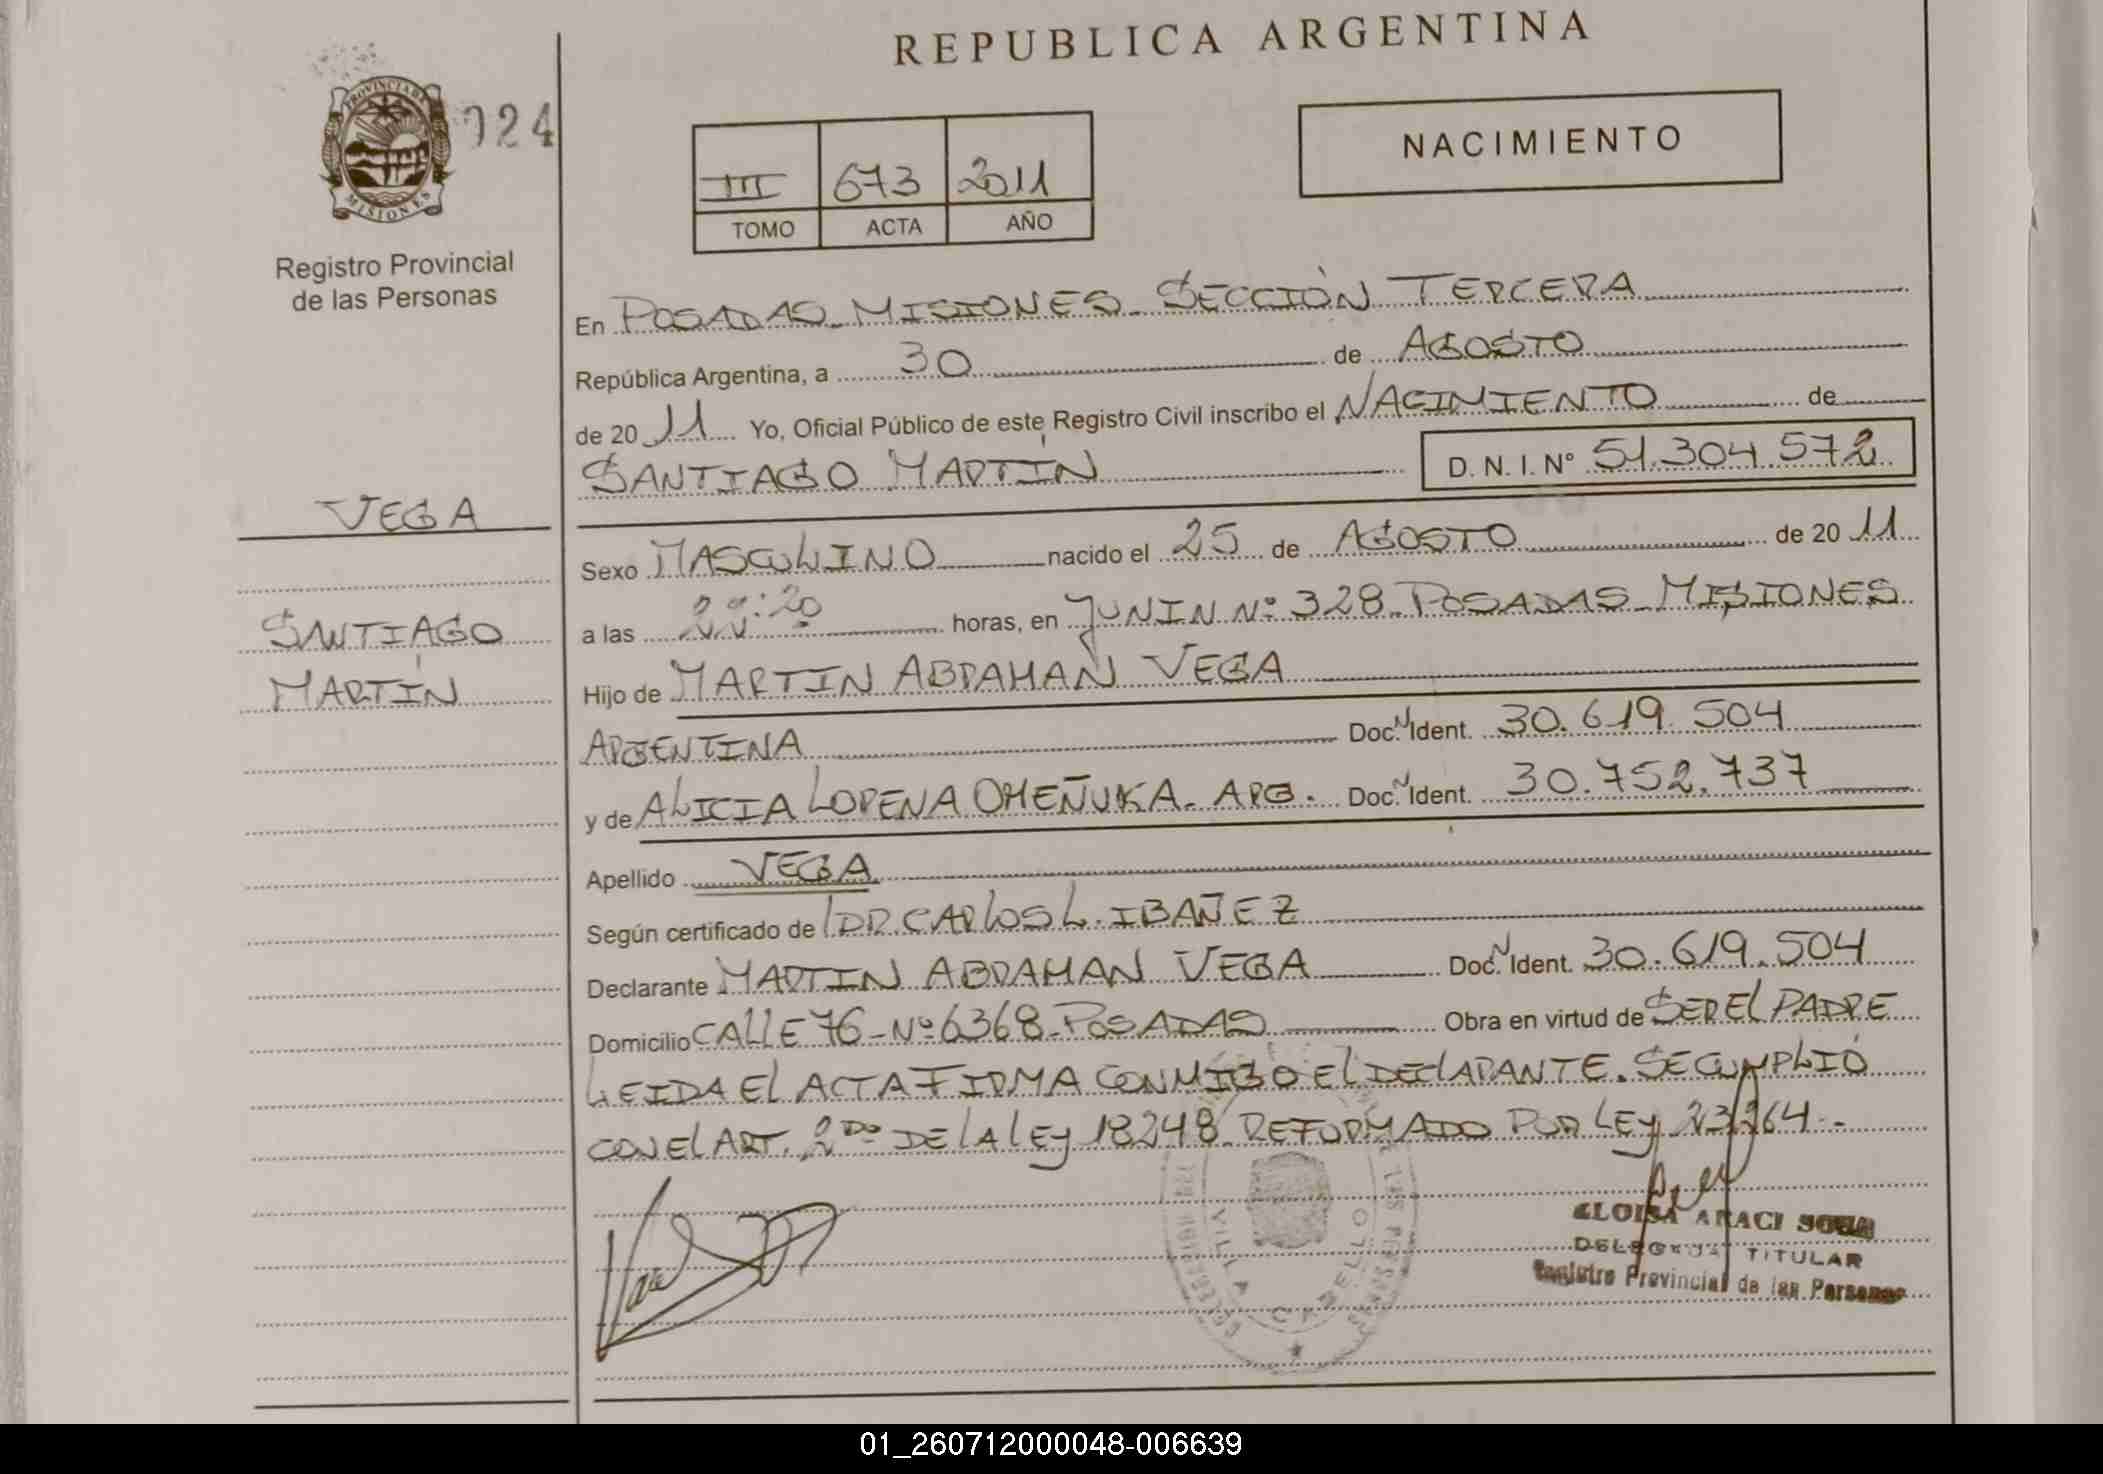 REPUBLICA ARGENTINA
PROVINCIA DE
MISIONES
024
Registro Provincial
de las Personas
III 673 2011
TOMO ACTA AÑO
NACIMIENTO
En POSADAS_MISIONES_SECCIÓN TERCERA
República Argentina, a 30 de AGOSTO
de 20 11 Yo, Oficial Público de este Registro Civil inscribo el NACIMIENTO de
SANTIAGO MARTÍN D. N. I. N° 51.304.572
VEGA
SANTIAGO
MARTÍN
Sexo MASCULINO nacido el 25 de AGOSTO de 20 11
a las 22:20 horas, en JUNIN N° 328_POSADAS_MISIONES
Hijo de MARTIN ABRAHAN VEGA
ARGENTINA Doc. N Ident. 30.619.504
y de ALICIA LORENA OMEÑUKA. ARG. Doc. N Ident. 30.752.737
Apellido VEGA
Según certificado de DR. CARLOS L. IBAÑEZ
Declarante MARTIN ABRAHAN VEGA Doc. N Ident. 30.619.504
Domicilio CALLE 76_N° 6368_POSADAS Obra en virtud de SER EL PADRE
LEIDA EL ACTA FIRMA CONMIGO EL DECLARANTE. SE CUMPLIÓ
CON EL ART. 2DO DE LA LEY 18248_REFORMADO POR LEY 23264.-
VILLA CABELLO
ELOISA ARACI
DELEGADA TITULAR
Registro Provincial de las Personas
01_260712000048-006639